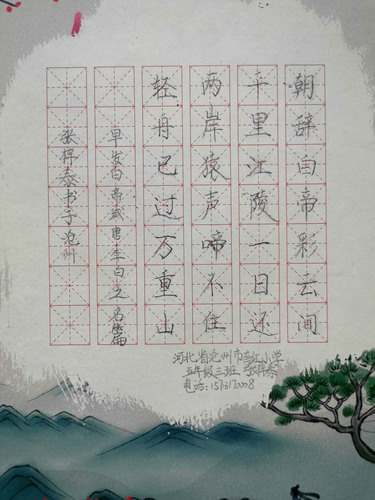 朝辞白帝彩云间
千里江陵一日还
两岸猿声啼不住
轻舟已过万重山
早发白帝城唐李白之名篇
张梓泰书于沧州
河北省沧州市小学
五年级三班 张梓泰
电话: